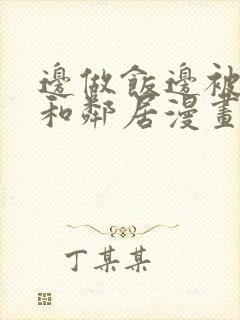 邊做飯邊被
和鄰居漫畫
丁某某